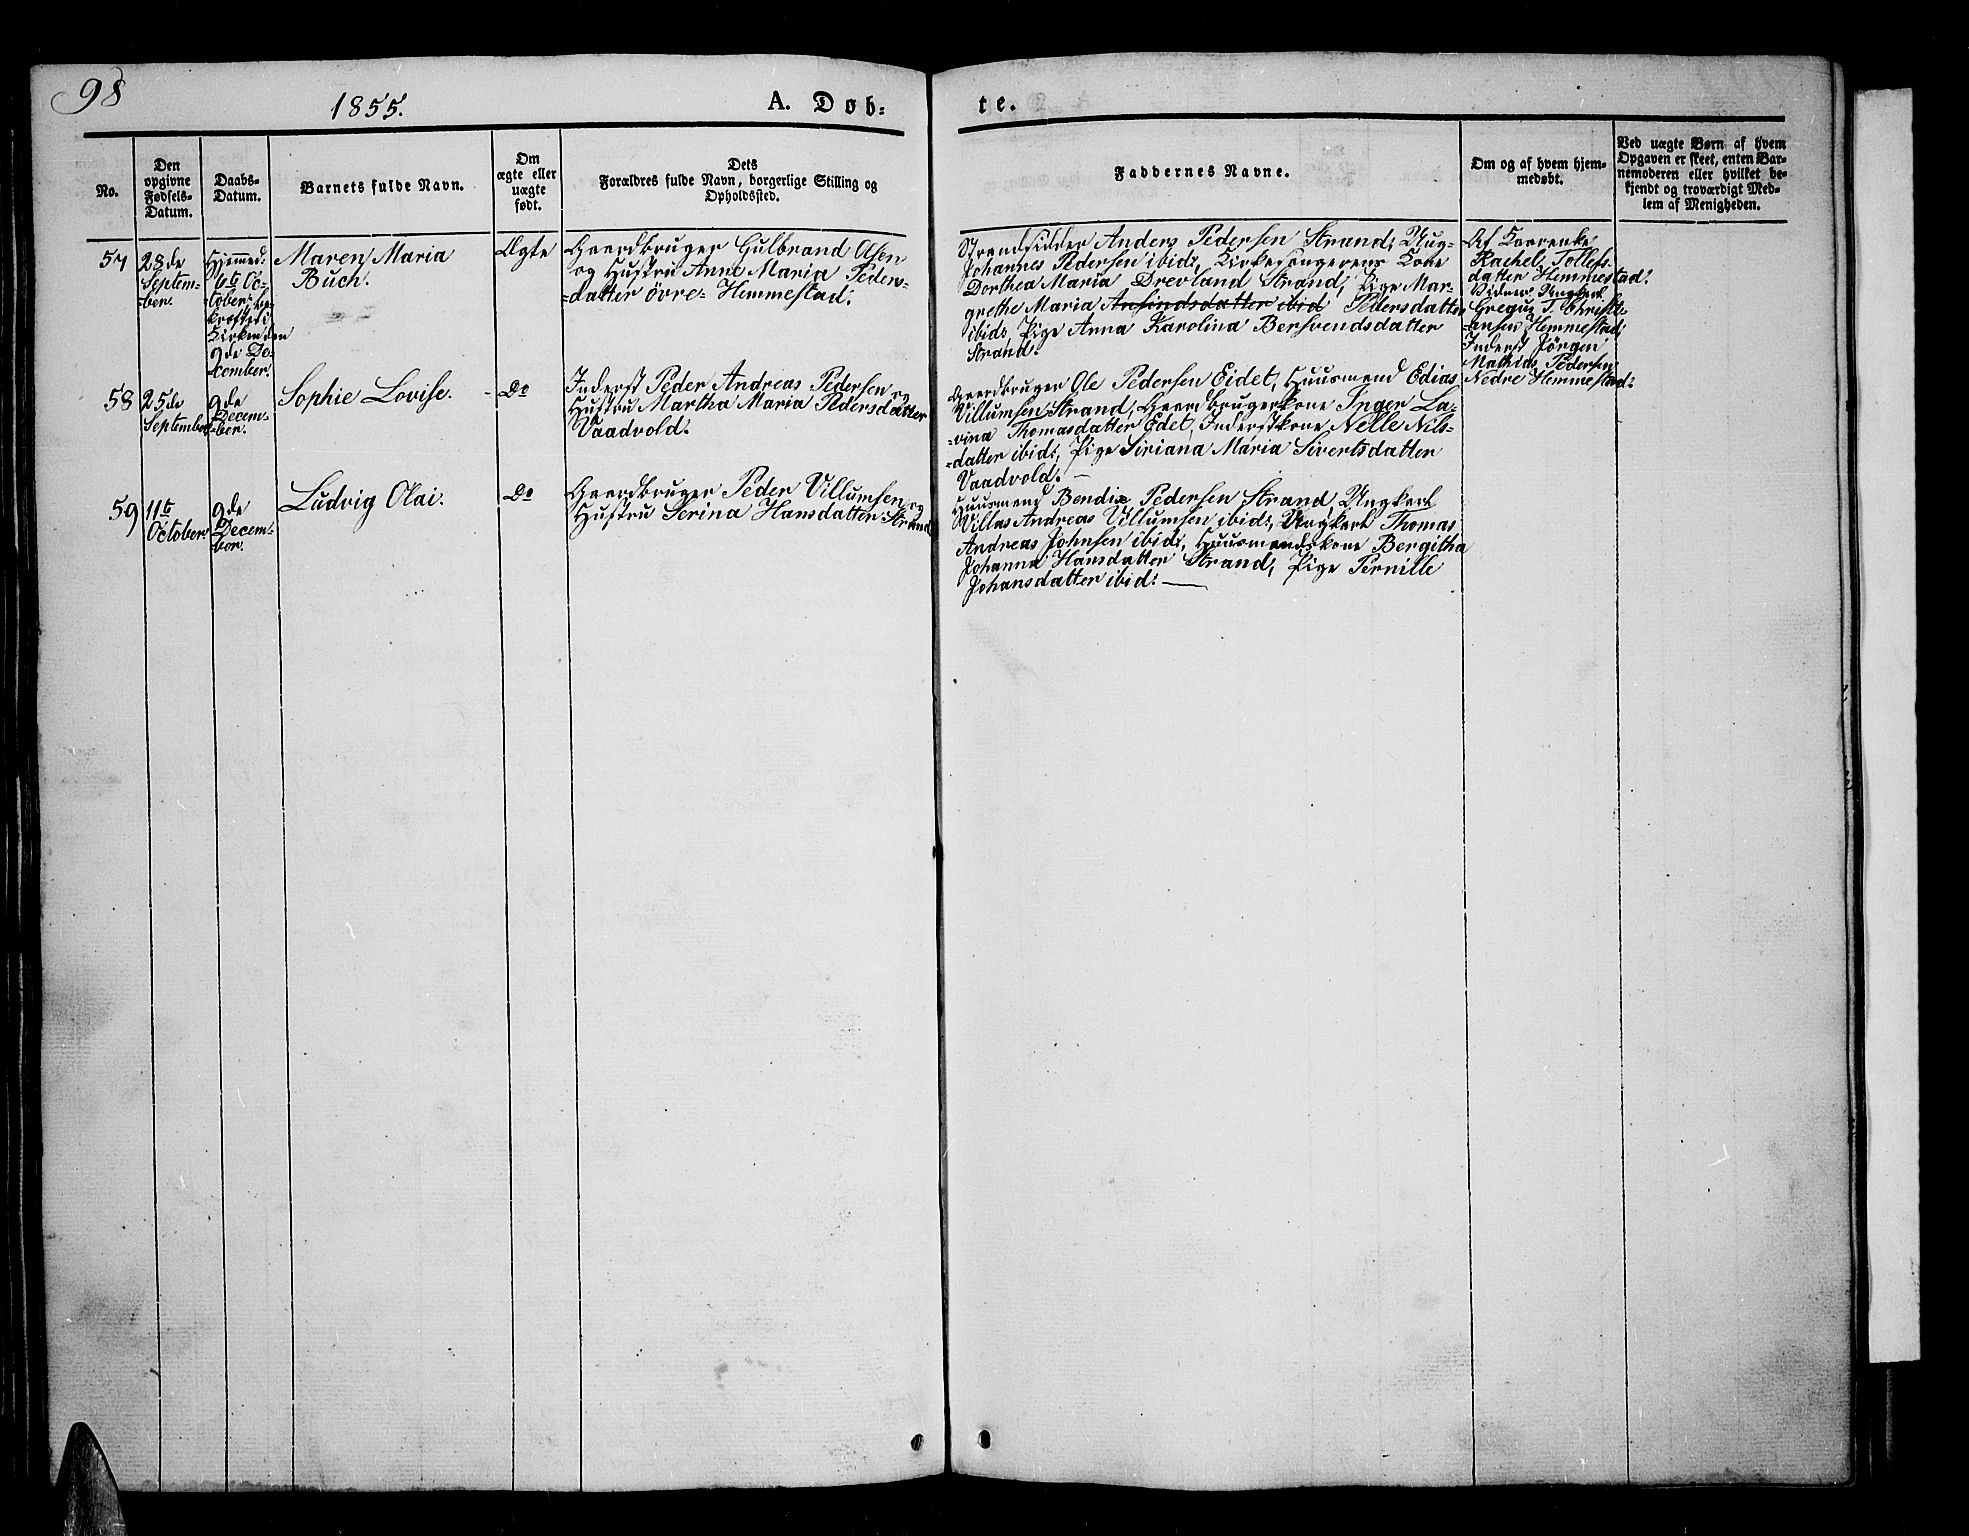 98
1855.
A. Døb-
te.
No.
Den
opgivne
Fødsels-
Datum.
Daabs-
Datum.
Barnets fulde Navn.
Om
ægte eller
uægte
født.
Dets
Forældres fulde Navn, borgerlige Stilling og
Opholdssted.
Faddernes Navne.
Om og af hvem hjem-
medøbt.
Ved uægte Børn af hvem
Opgaven er skeet, enten Bar-
nemoderen eller hvilket be-
kjendt og troværdigt Med-
lem af Menigheden.
57
28de
Septem-
ber.
Hjemmed.
6te Oc-
tober,
i
Kirken den
9de De-
cember.
Maren Maria
Buch.
Ægte
Gaardbruger Gulbrand Olsen
og Hustru Anne Maria Peders-
datter övre Hemmestad.
Strandsidder Anders Pedersen Strand, Ung-
Johannes Pedersen ibid:, Kirkesangerens Kone
Dorthea Maria Drevland Strand, Pige Mar-
grethe Maria Arfindsdatter ibid Pedersdatter
ibid:, Pige Anna Karolina Bersvendsdatter
Strand.
Af
Rachel Tollefs-
datter Hemmestad.
Vidner Ungkarl
Gregus T. Christi-
ansen Hemmestad,
Inderst Jörgen
Mathias Pedersen
Nedre Hemmestad.
58
25de
September
9de
Decem-
ber.
Sophie Lovise.
Do
Inderst Peder Andreas Pedersen og
Hustru Martha Maria Pedersdatter
Vaadvold.
Gaardbruger Ole Pedersen Eidet, Huusmand Edias
Villumsen Strand, Gaardbrugerkone Inger La-
vina Thomasdatter Edet, Inderstkone Nelle Nils-
datter ibid:, Pige Siriana Maria Sivertsdatter
Vaadvold. -
59
11te
October
9de
Decem-
ber.
Ludvig Olai.
Do
Gaardbruger Peder Villumsen og
Hustru Serina Hansdatter Strand
Huusmand Bendix Pedersen Strand, Ungkarl
Villas Andreas Villumsen ibid:, Ungkarl Thomas
Andreas Johnsen ibid:, Huusmandskone Bergitha
Johanna Hansdatter Strand, Pige Pernille
Johansdatter ibid: